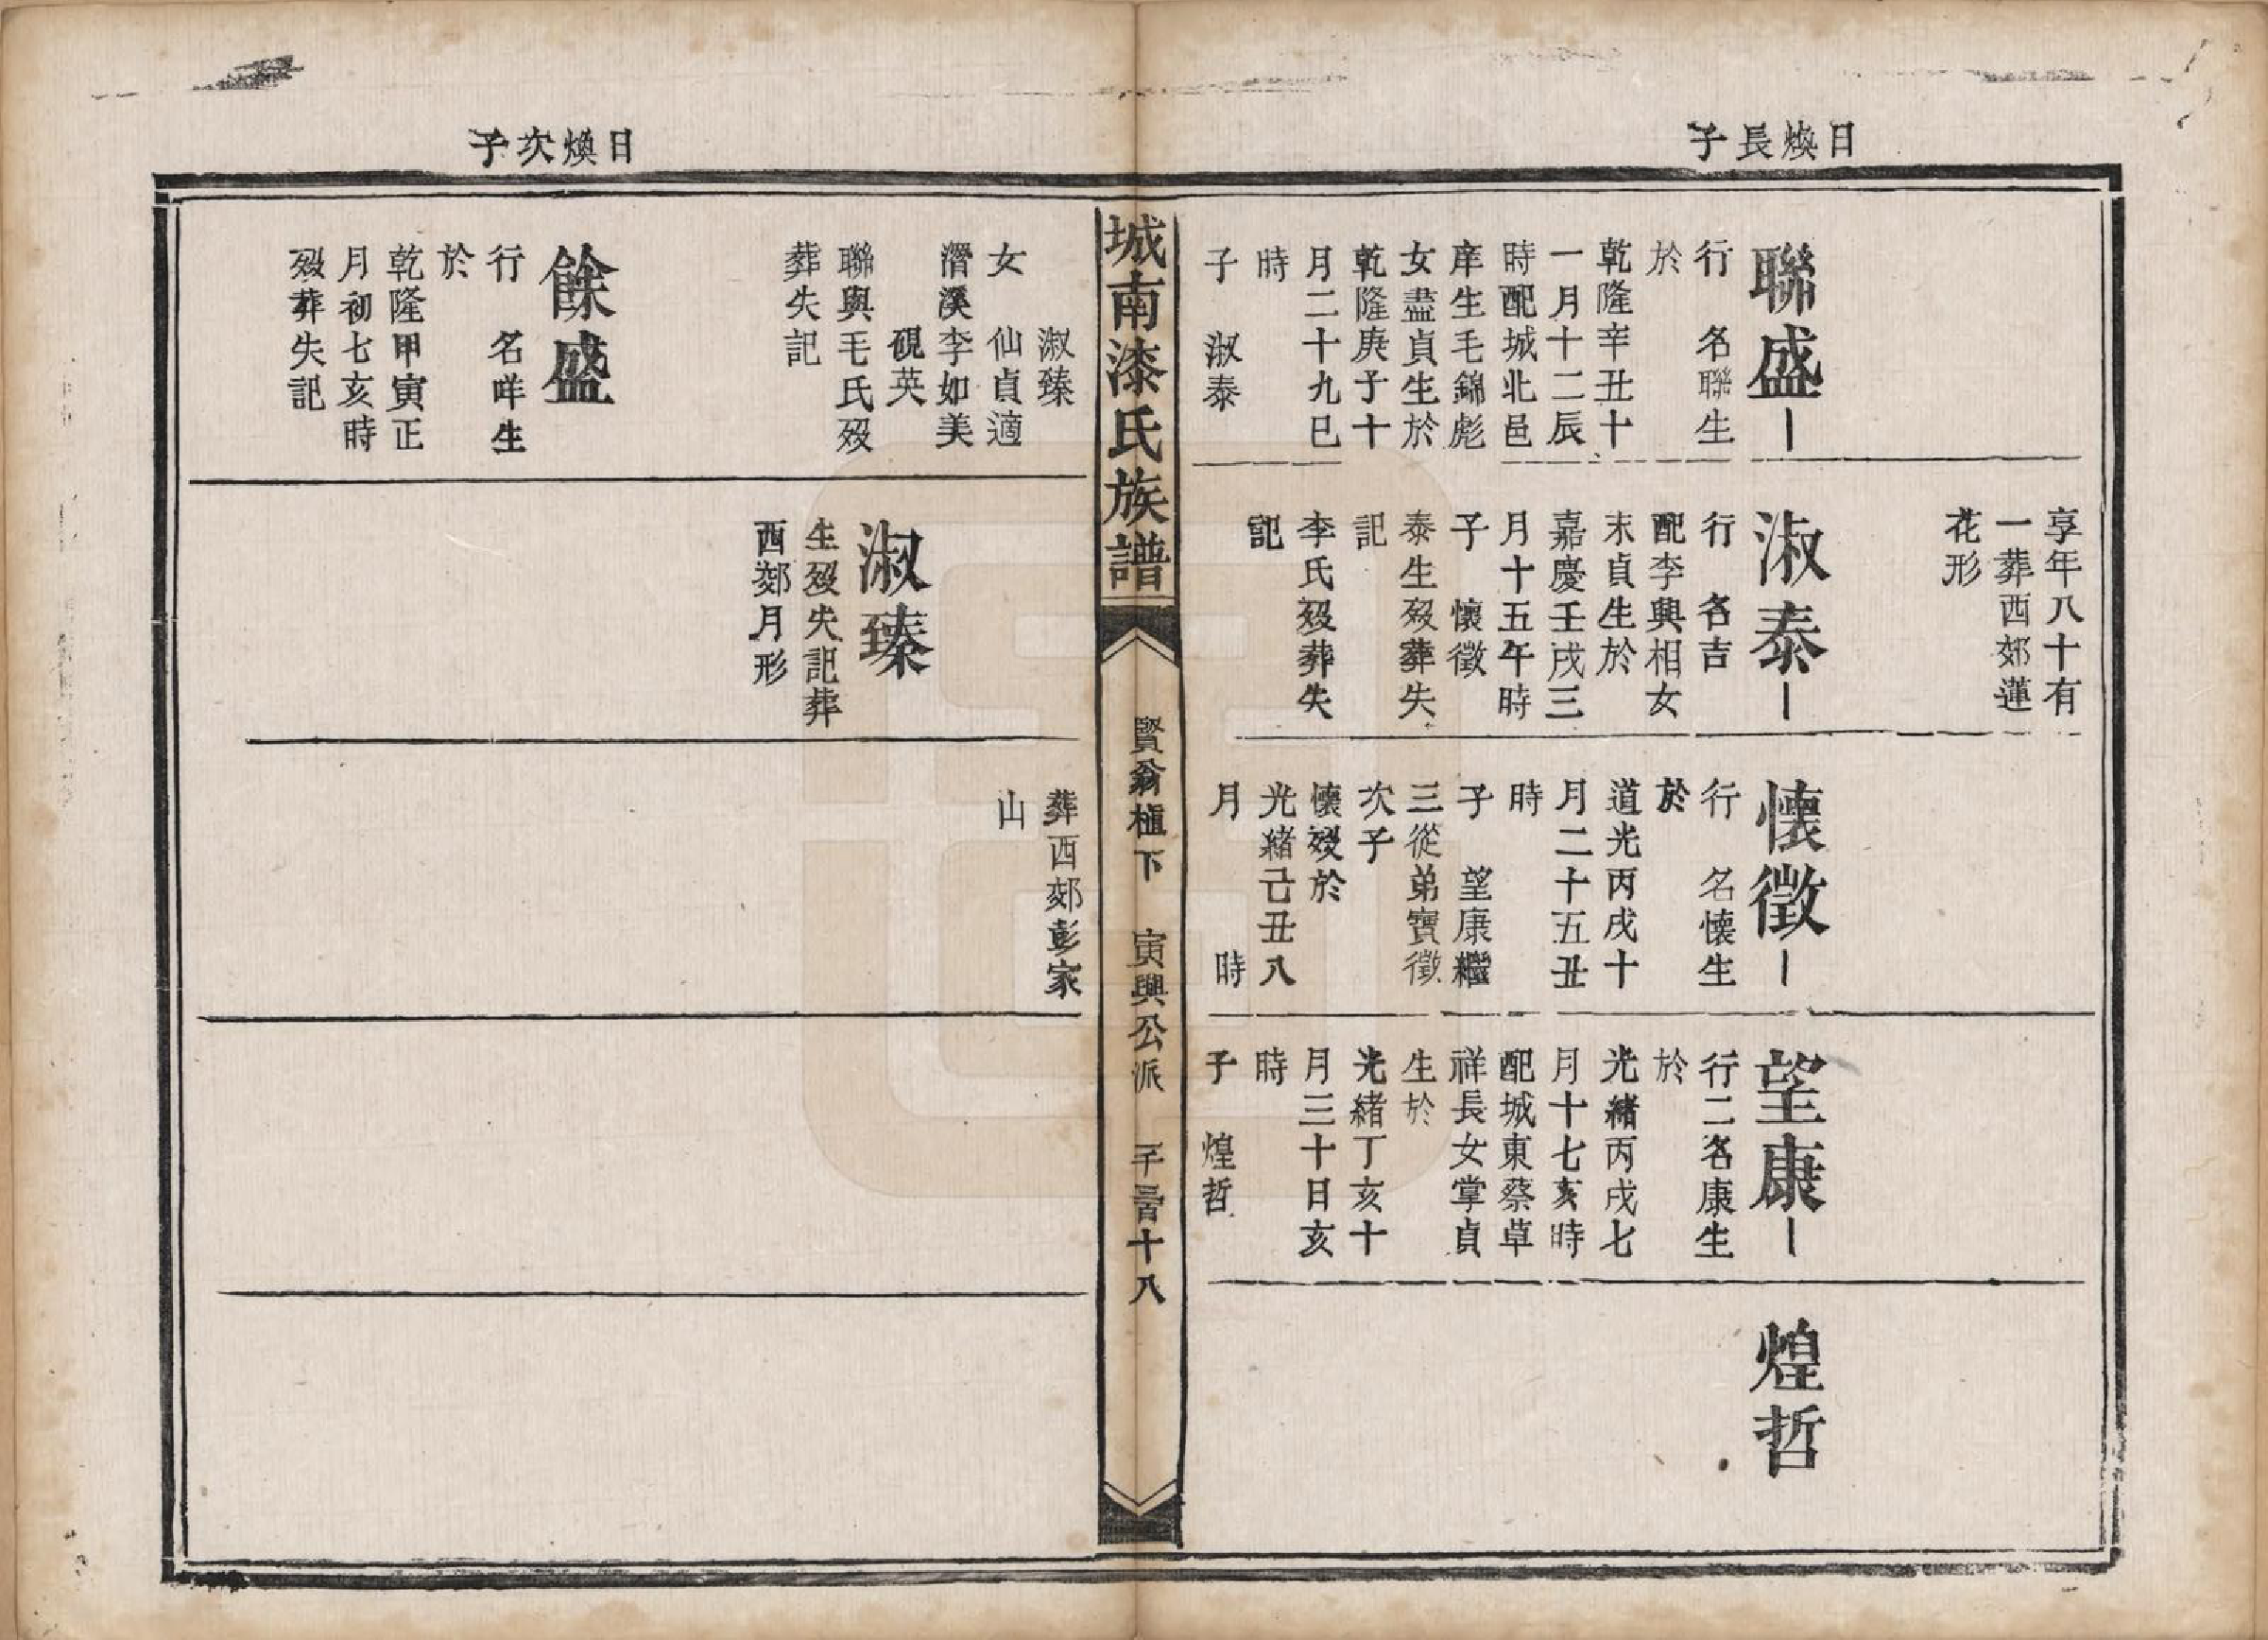 日煥長子
聯盛
行　名聯生
於
乾隆辛丑十
一月十二辰
時配城北邑
庠生毛錦彪
女盡貞生於
乾隆庚子十
月二十九巳
時
子　淑泰
享年八十有
一葬西郊蓮
花形
淑泰
行　名吉
配李興相女
末貞生於
嘉慶壬戌三
月十五午時
子　懷徵
泰生歿葬失
記
李氏歿葬失
記
懷徵
行　名懷生
於
道光丙戌十
月二十五丑
時
子　望康繼
三從弟寶徵
次子
懷歿於
光緒己丑八
月　　　時
望康
行二名康生
於
光緒丙戌七
月十七亥時
配城東蔡草
祥長女掌貞
生於
光緒丁亥十
月三十日亥
時
子　煌哲
煌哲
城南漆氏族譜
賢翁樞下　寅興公派　千三百十八
日煥次子
淑臻
女　仙貞適
潛溪李如美
硯英
聯與毛氏歿
葬失記
餘盛
行　名咩生
於
乾隆甲寅正
月初七亥時
歿葬失記
淑臻
生歿失記葬
西郊月形
葬西郊彭家
山